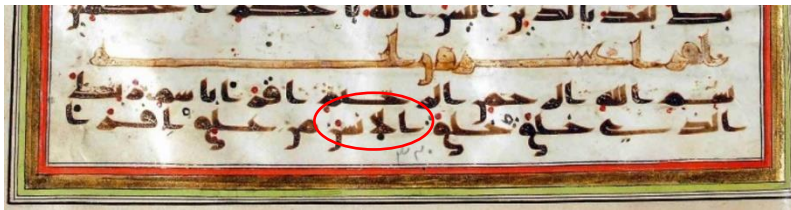 بعد بالدين اليس الله باحكم الحكمين
بسم الله الرحمن الرحيم اقرا باسم ربك
الذي خلق خلق الانسن من علق اقرا و